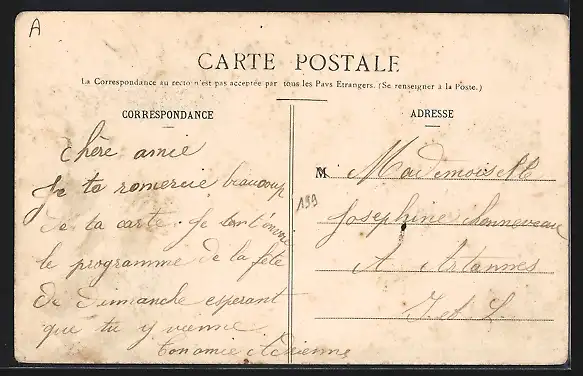 A
CARTE POSTALE
La Correspondance au recto n'est pas acceptée par tous les Pays Etrangers. (Se renseigner à la Poste.)
CORRESPONDANCE
Chère amie
Je te remercie beaucoup
de ta carte. Je
le programme de la fête
de Dimanche esperant
que tu y vienne
ton amie
199
ADRESSE
M Mademoiselle
Joséphine
A Artannes
I. et L.